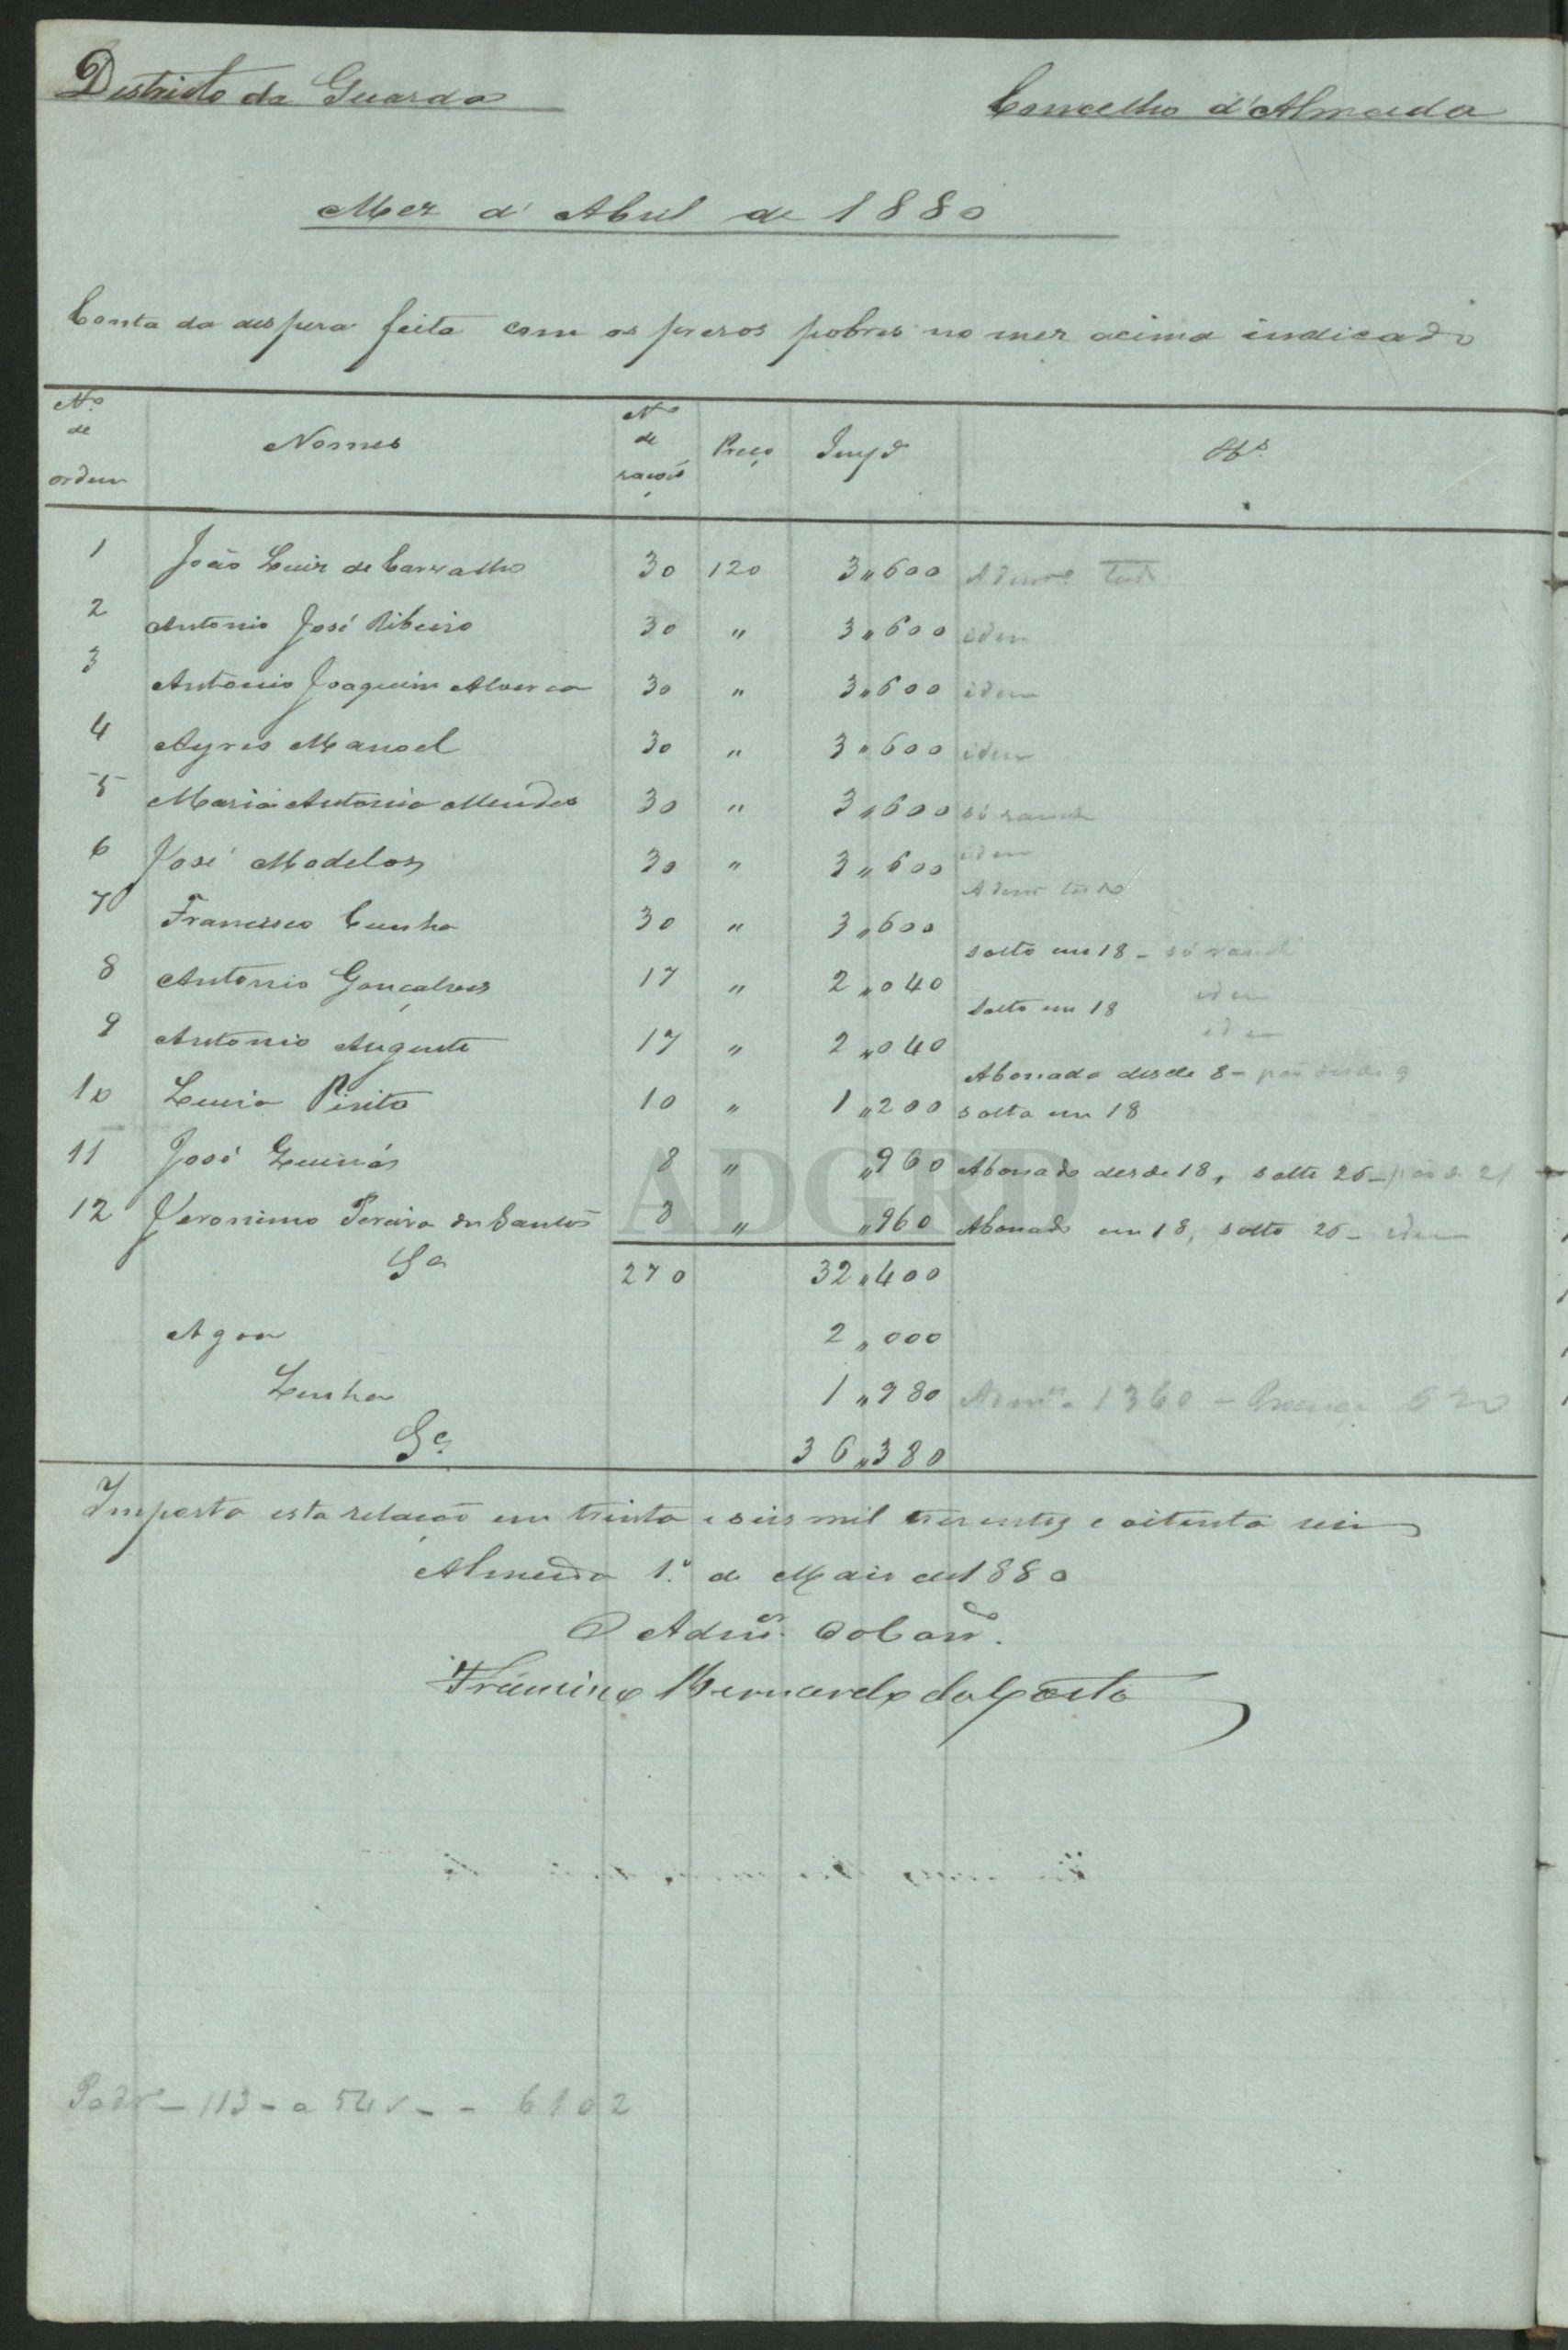 Districto da Guarda
Concelho d'Almeida
Mez d'Abril de 1880
Conta da despeza feita com os prezos pobres no mez acima indicado
Nº de ordem Nomes Nº de rações Preço Impª Obs.
1 João Luiz de Carvalho 30 120 3,,600 tudo
2 Antonio José Ribeiro 30 " 3,,600 idem
3 Antonio Joaquim 30 " 3,,600 idem
4 Ayres Manoel 30 " 3,,600 idem
5 Maria Antonia Mendes 30 " 3,,600 só rancho
6 José Modelos 30 " 3,,600 idem
7 Francisco Cunha 30 " 3,,600 tudo
8 Antonio Gonçalves 17 " 2,,040 solto em 18 - só rancho
9 Antonio Augusto 17 " 2,,040 solto em 18 idem
idem
10 Luiza Pinto 10 " 1,,200 Abonada desde 8 - pão desde 9
solta em 18
11 José 8 " ,,960 Abonado desde 18, solto 26 - pão d 21
12 Jeronimo Pereira dos Santos 8 " ,,960 Abonado em 18, solto 26 - idem
Sª 270 32,,400
Agoa 2,,000
Lenha 1,,980 1360 - 620
Sª 36,,380
Importa esta relação em trinta e seis mil trezentos e oitenta reis
Almeida 1º de Maio de 1880
O Admor do Conco.
Firmino Bernardo da Costa
113 - a 54 - - 6102
ADGRD